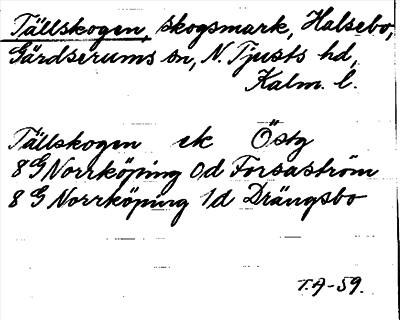 Tällskogen, skogsmark, Halsebo,
Gärdserums sn, N. Tjusts hd,
Kalm. l.
Tällskogen ek Östg
8G Norrköping 0d Forsaström
8G Norrköping 1d Drängsbo
T.A-59.